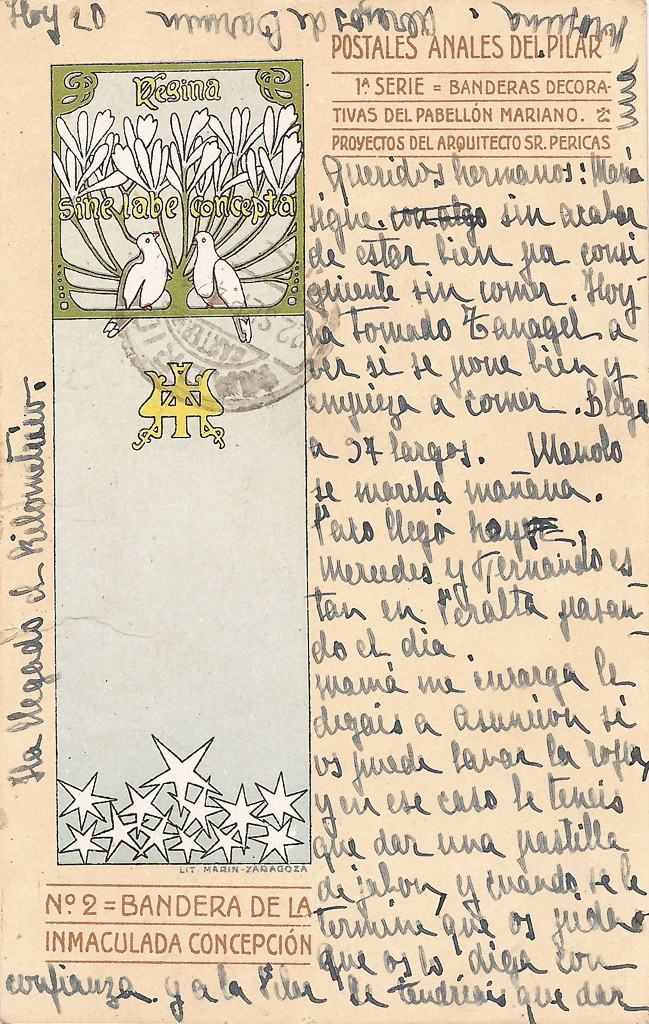 POSTALES "ANALES DEL PILAR"
1ª SERIE = BANDERAS DECORA-
TIVAS DEL PABELLÓN MARIANO.
PROYECTOS DEL ARQUITECTO SR. PERICAS
Regina
sine labe concepta
LIT. MARIN-ZARAGOZA
Nº 2 = BANDERA DE LA
INMACULADA CONCEPCIÓN
Queridos hermanos: Mamá
sigue con algo sin acabar
de estar bien pa consi
guiente sin comer. Hoy
ha tomado Tanagel a
ver si se pone bien y
empieza a comer. Llega
a 37 largos. Manolo
se marcha mañana.
Paco llegó hoy
Mercedes y Fernando es
tan en Peralta pasan-
do el dia.
Mamá me encarga le
digais a Asuncion si
os puede lavar la ropa,
y en ese caso le teneis
que dar una pastilla
de jabon, y cuando se le
termine que os pida o
que os lo diga con
confianza. y a la Pilar le tendriais que dar
Ha llegado el Kilometrico.
Hoy 20
abrazos de Carmen